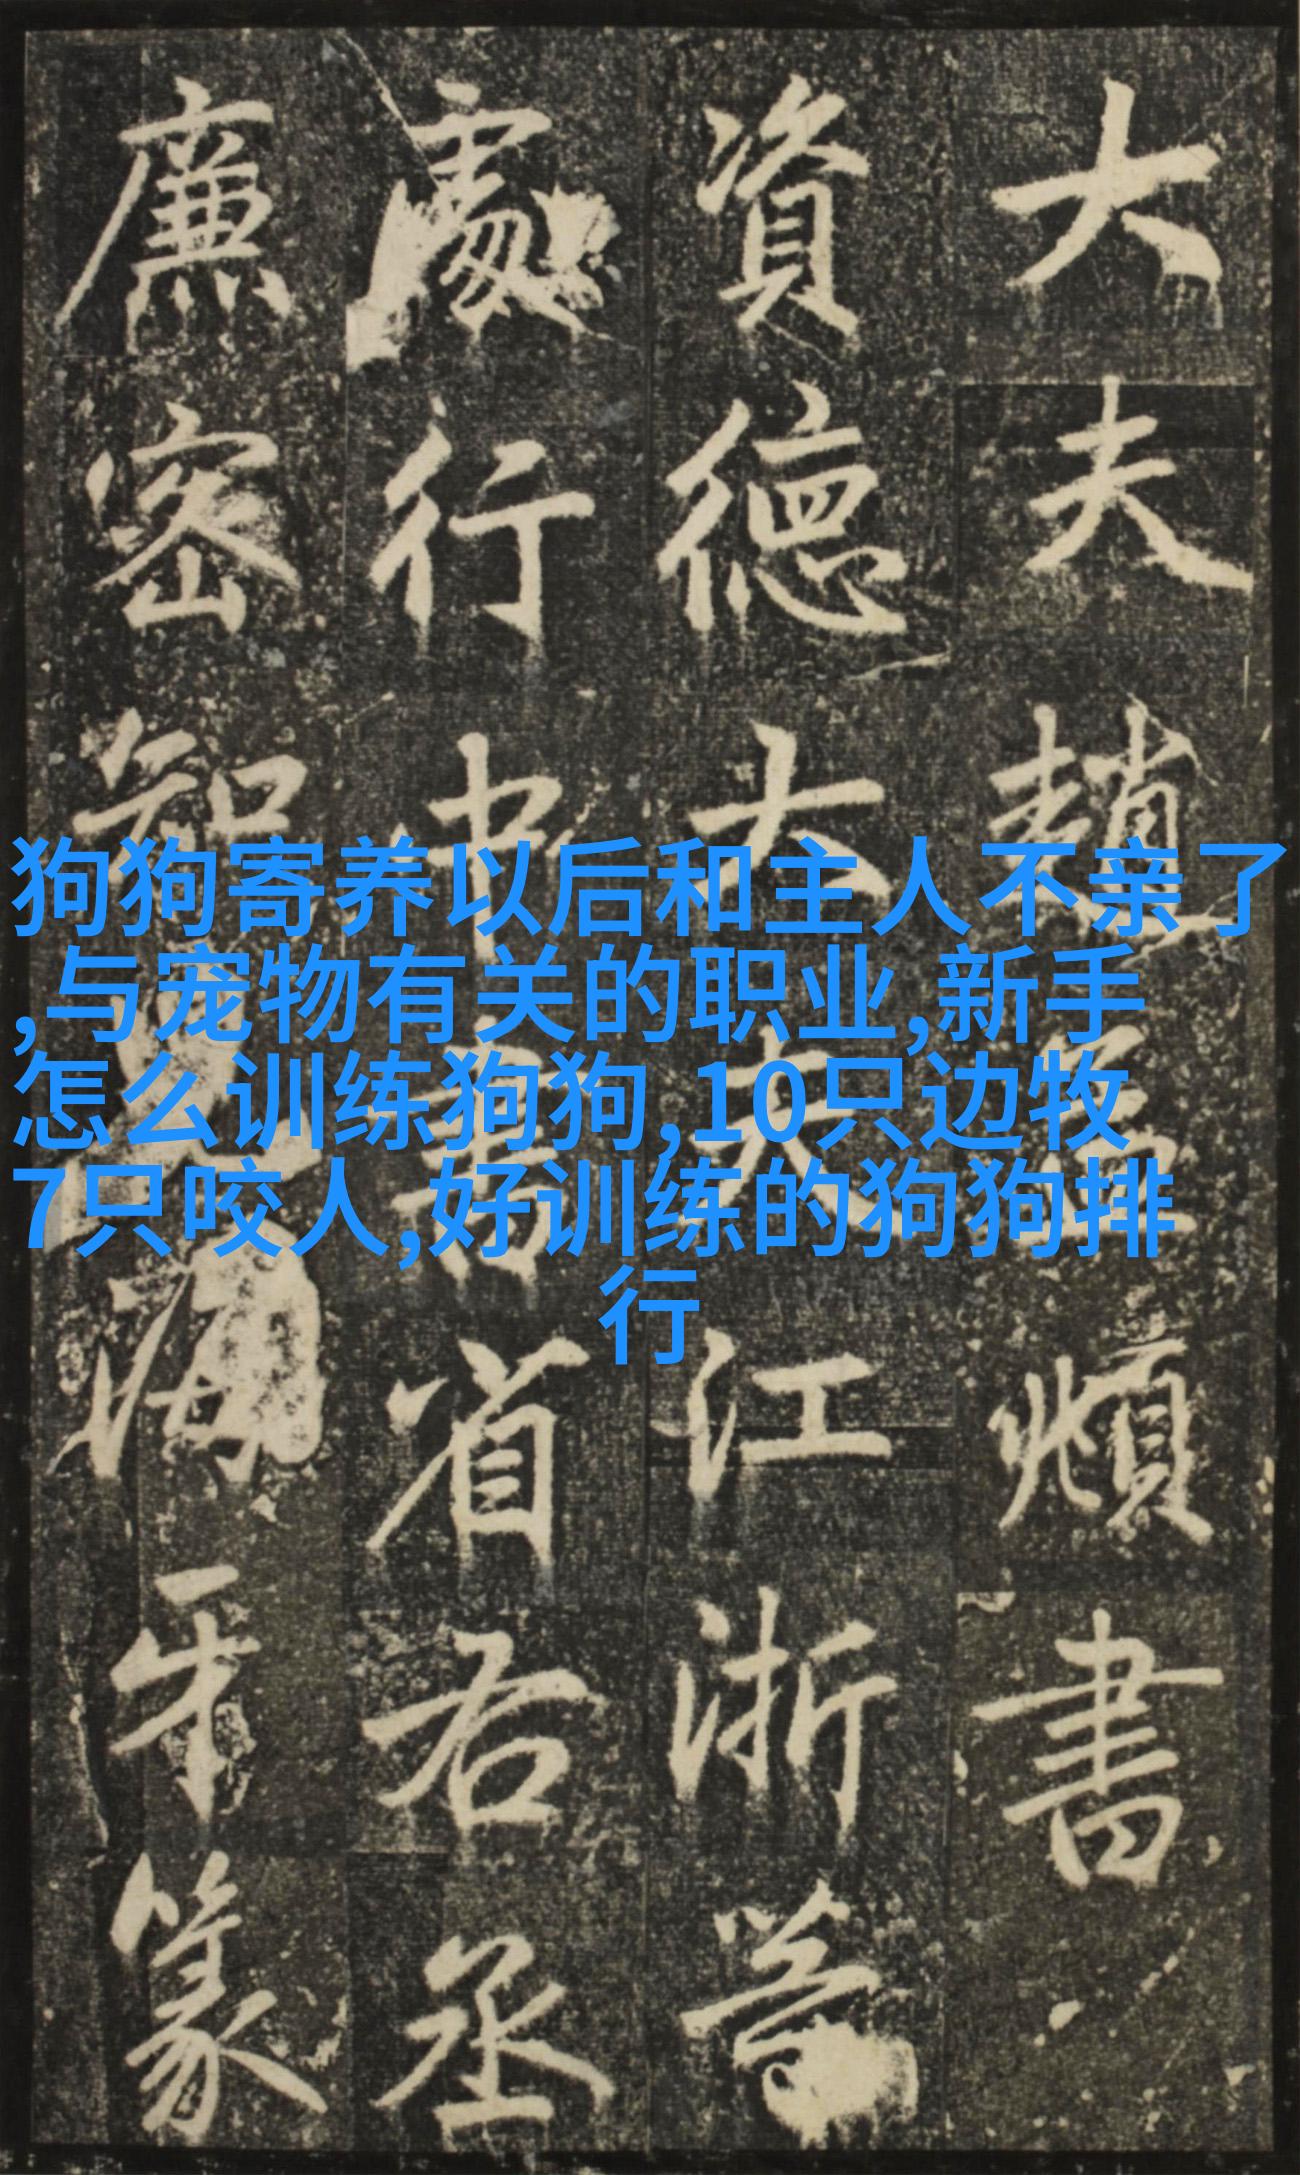 大夫趙孟頫書
資德大夫江浙等
處行中書省右丞
廉密知海牙篆
狗狗寄养以后和主人不亲了
,与宠物有关的职业,新手
怎么训练狗狗,10只边牧
7只咬人,好训练的狗狗排
行